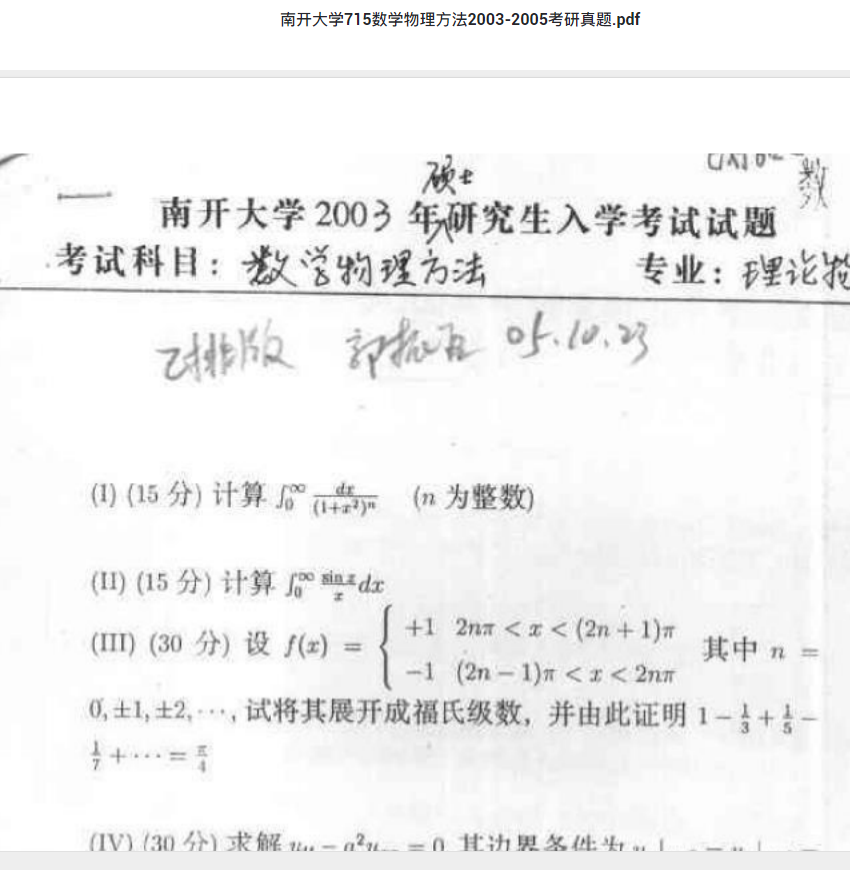 南开大学715数学物理方法2003-2005考研真题.pdf
硕士
数
南开大学 2003 年研究生入学考试试题
考试科目：数学物理方法 专业：理论物
已排版 05.10.23
(I) (15 分) 计算 ∫₀^∞ dx/(1+x²)ⁿ (n 为整数)
(II) (15 分) 计算 ∫₀^∞ sin x/x dx
+1 2nπ < x < (2n + 1)π
(III) (30 分) 设 f(x) = { 其中 n =
−1 (2n − 1)π < x < 2nπ
0, ±1, ±2, ⋯, 试将其展开成福氏级数，并由此证明 1 − 1/3 + 1/5 −
1/7 + ⋯ = π/4
(IV) (30 分) 求解 其边界条件为